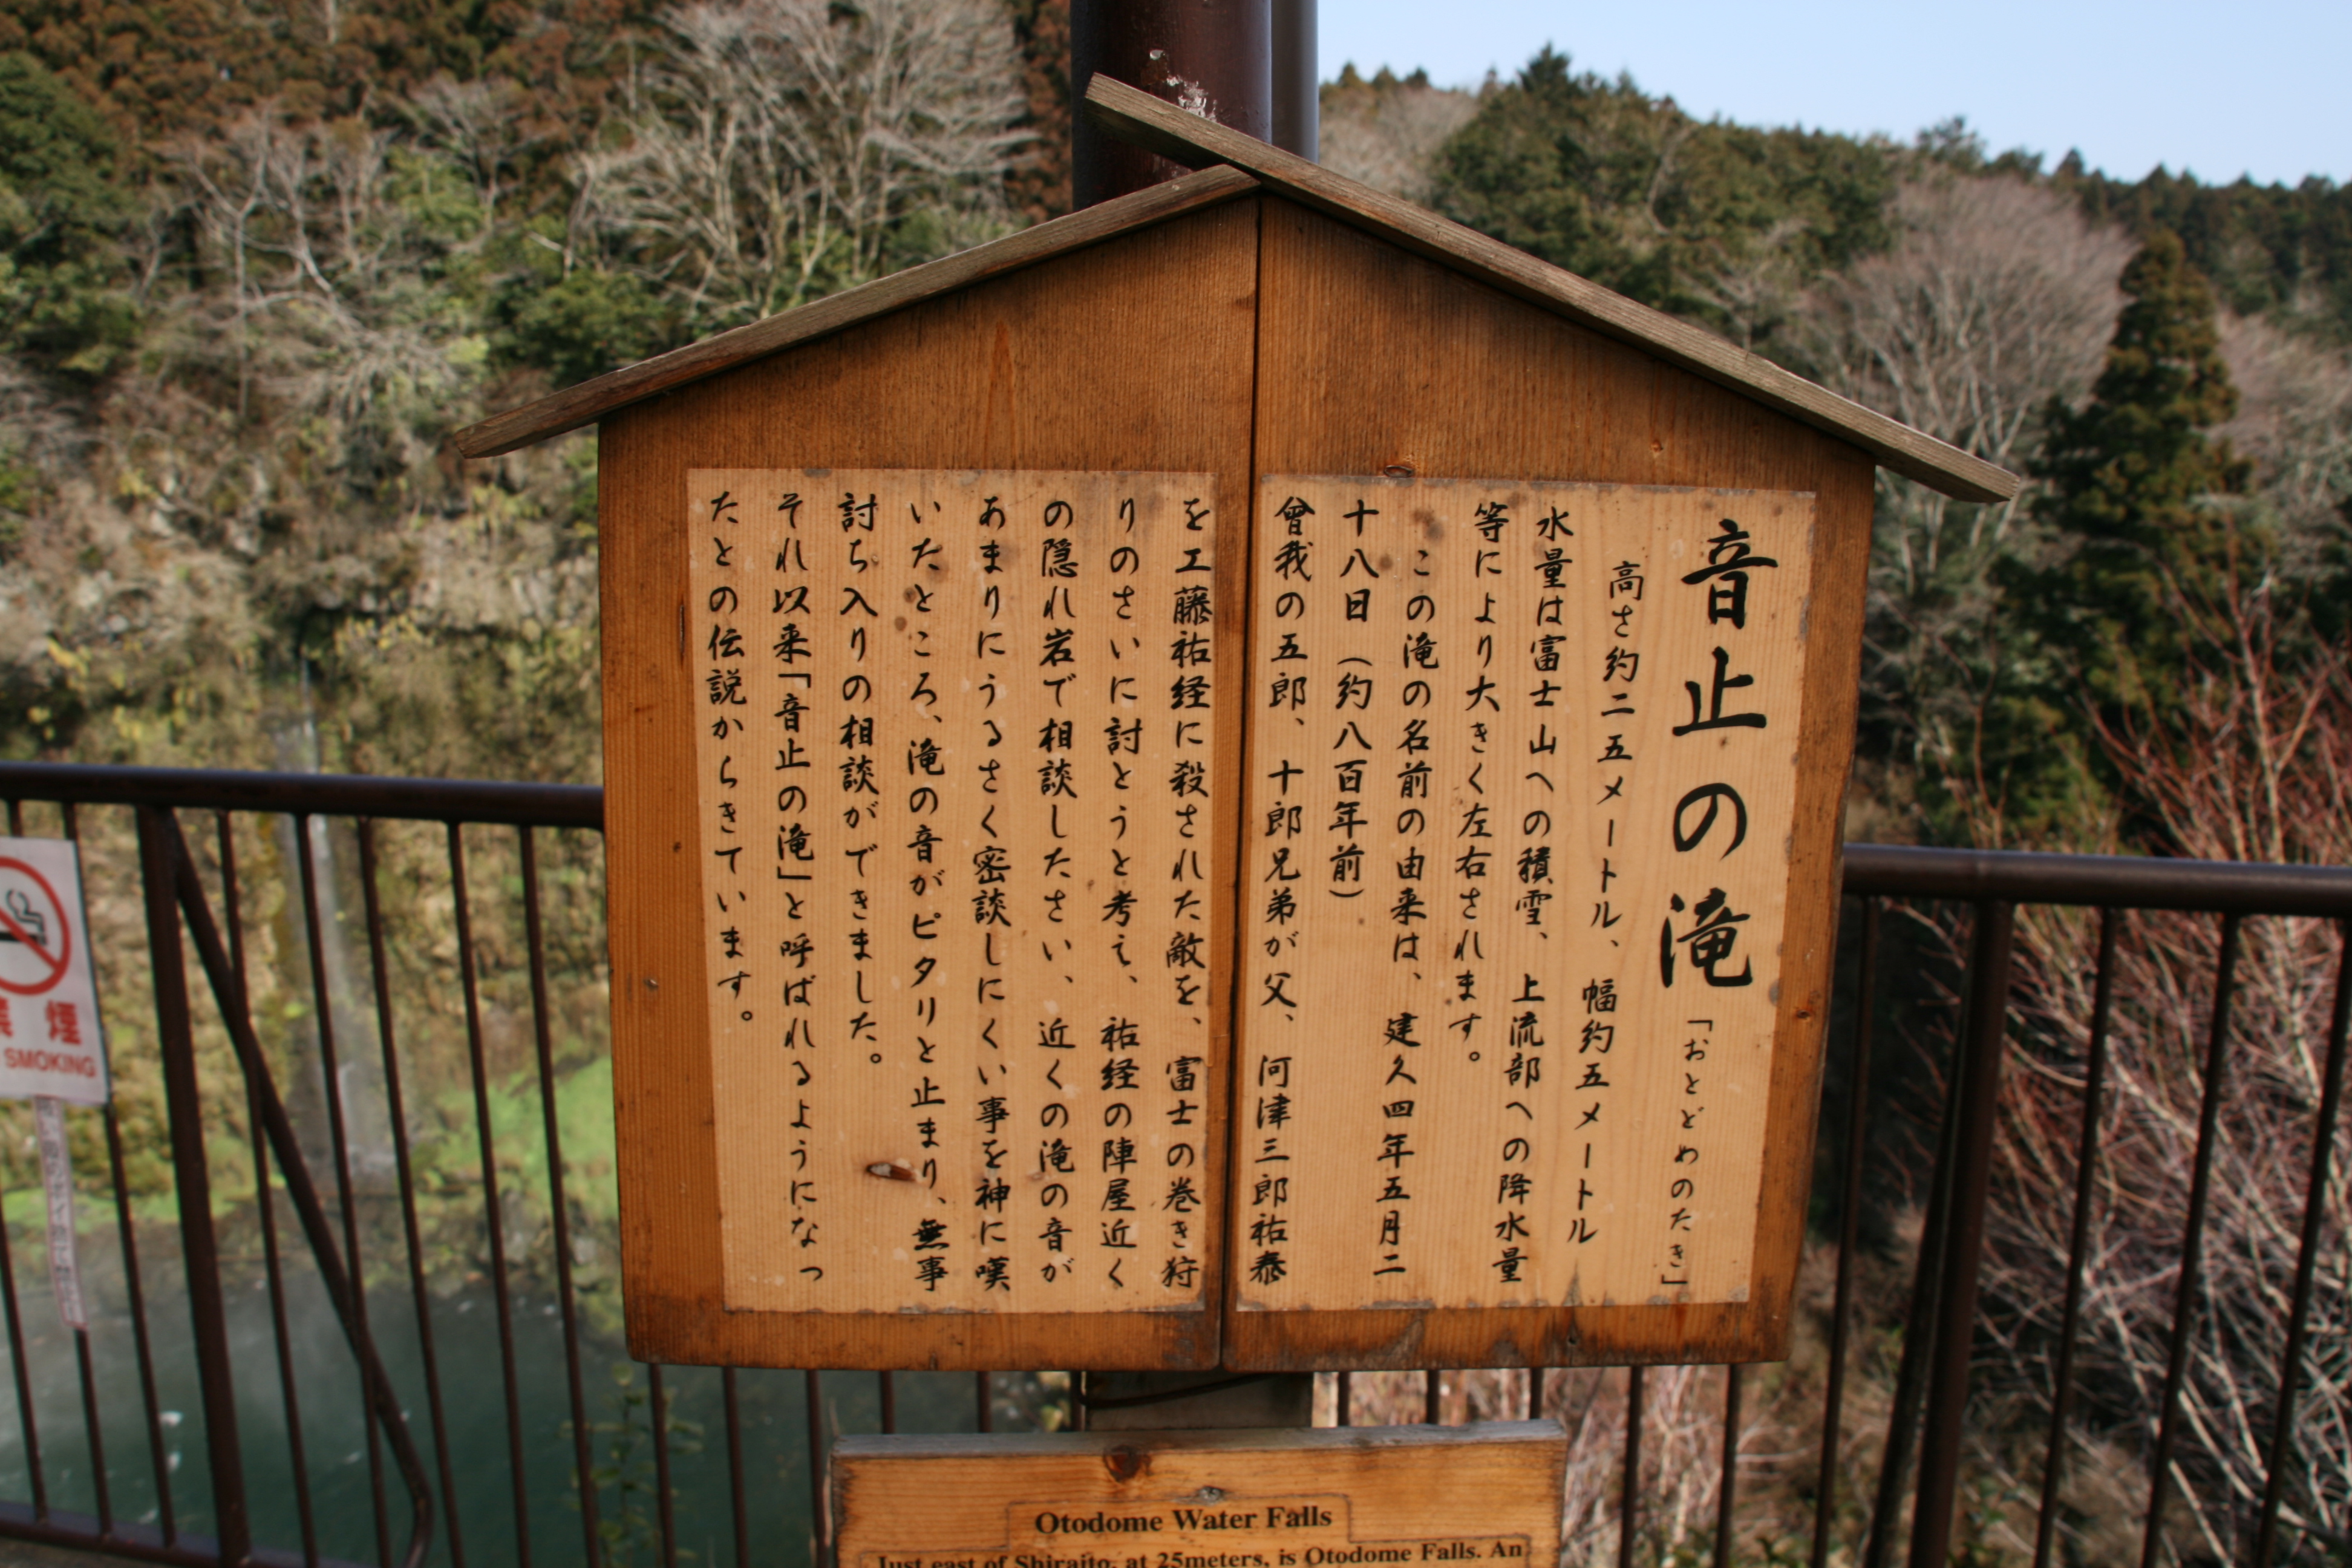 音止の滝「おとどめのたき」
高さ約二五メートル、幅約五メートル
水量は富士山への積雪、上流部への降水量
等により大きく左右されます。
この滝の名前の由来は、建久四年五月二
十八日（約八百年前）
曾我の五郎、十郎兄弟が父、河津三郎祐泰
を工藤祐経に殺された敵を、富士の巻き狩
りのさいに討とうと考え、祐経の陣屋近く
の隠れ岩で相談したさい、近くの滝の音が
あまりにうるさく密談しにくい事を神に嘆
いたところ、滝の音がピタリと止まり、無事
討ち入りの相談ができました。
それ以来「音止の滝」と呼ばれるようになっ
たとの伝説からきています。
煙
SMOKING
Otodome Water Falls
Just east of Shiraito, at 25meters, is Otodome Falls. An